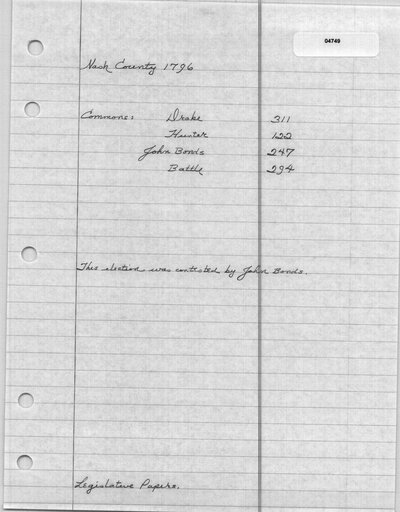 04749
Nash County 1796
Commons: Drake 311
Hunter 122
John Bonds 247
Battle 294
This election was contested by John Bonds.
Legislative Papers.